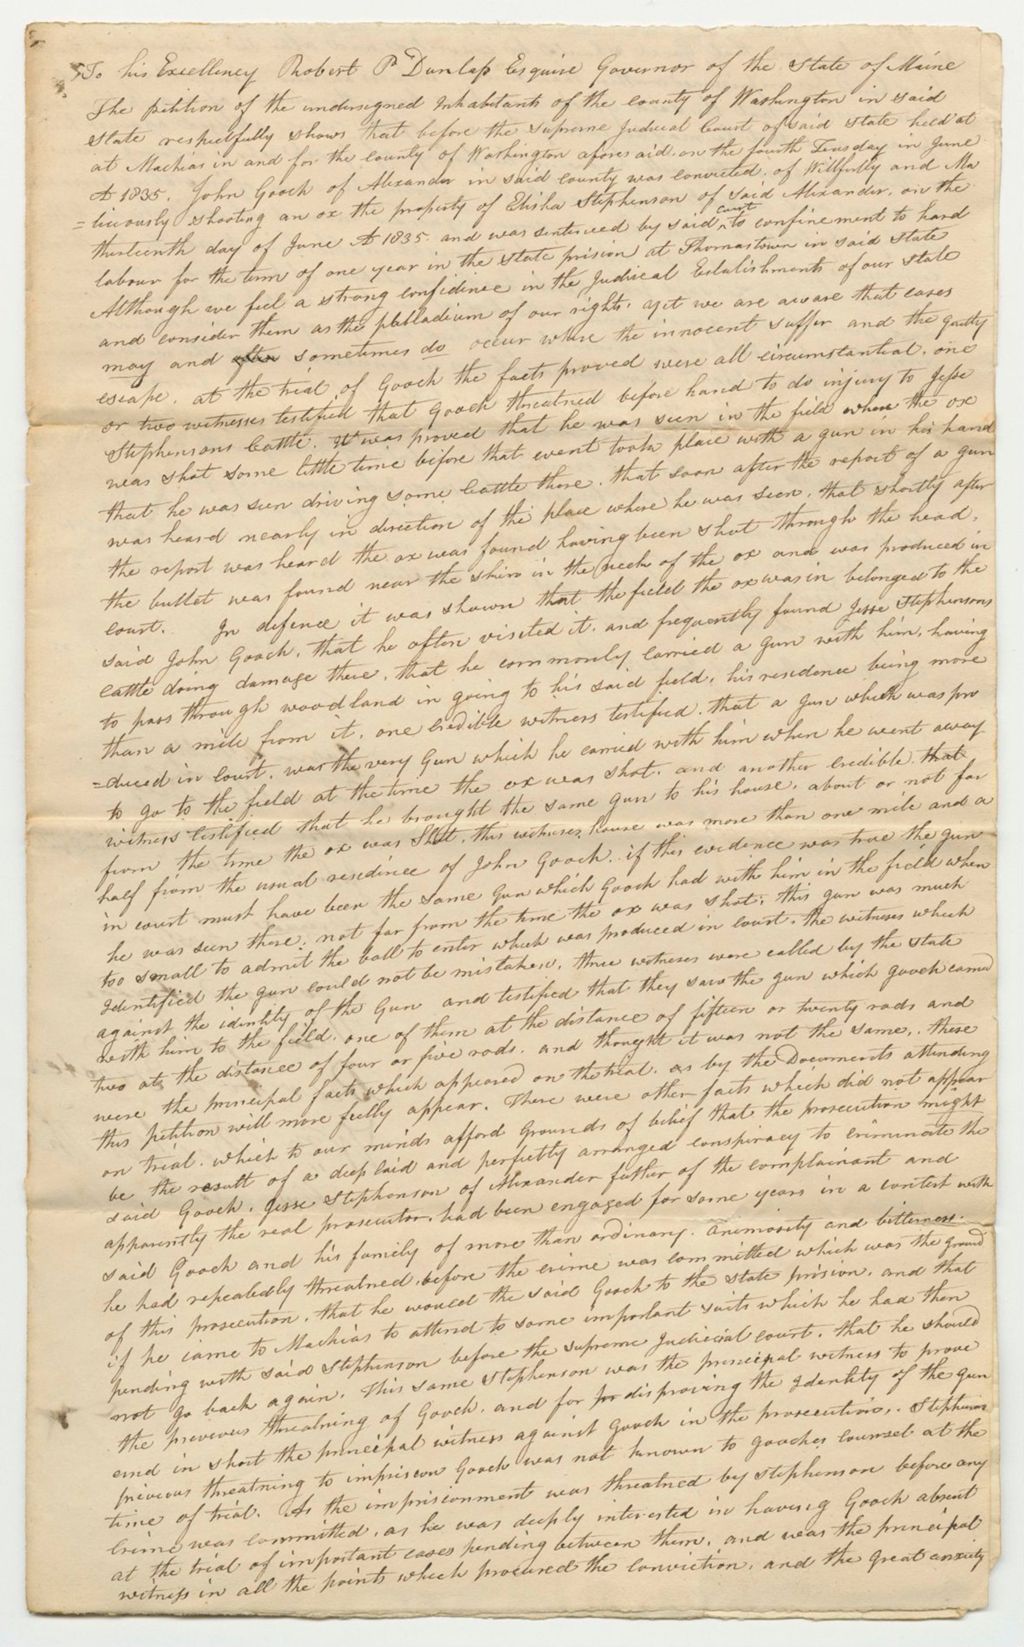 To his Excellency Robert P Dunlap Esquire Governor of the State of Maine
The petition of the undersigned Inhabitants of the county of Washington in said
State respectfully shows that before the Supreme Judicial Court of said State held at
at Machias in and for the county of Washington aforesaid, on the fourth Tuesday in June
AD 1835. John Gooch of Alexander in said county was convicted, of Willfully and Ma
=liciously shooting an ox the property of Elisha Stephenson of said Alexander, on the
thirteenth day of June AD 1835 and was sentenced by said court to confinement to hard
labour for the term of one year in the state prision at Thomastown in said State
Although we feel a strong confidence in the Judiceal Establishments of our State
and consider them as the palladium of our rights. yet we are aware that cases
may and often sometimes do occur where the innocent suffer and the guilty
escape. at the trial of Gooch the facts proved were all circumstantial. one
or two witnesses testified that Gooch threatned before hand to do injury to Jesse
Stephensons Cattle. It was proved that he was seen in the field where the ox
was shot some little time before that event took place with a gun in his hand
that he was seen driving some Cattle there, that soon after the report of a gun
was heard nearly in direction of the place where he was seen, that shortly after
the report was heard the ox was found having been shot through the head,
the bullet was found near the skin in the neck of the ox and was produced in
court. In defence it was shown that the field the ox was in belonged to the
said John Gooch, that he often visited it, and frequently found Jesse Stephensons
cattle doing damage there, that he commonly carried a gun with him, having
to pass through woodland in going to his said field, his residence being more
than a mile from it, one credible witness testified, that a gun which was pro
=duced in court, was the very Gun which he carried with him when he went away
to go to the field at the time the ox was shot. and another credible that
witness testified that he brought the same gun to his house, about or not far
from the time the ox was Shot, this witnesses house was more than one mile and a
half from the usual residence of John Gooch. if this evidence was true the gun
in court must have been the same Gun which Gooch had with him in the field when
he was seen there, not far from the time the ox was shot; this gun was much
too small to admit the ball to enter which was produced in court. the witnesses which
Identified the gun could not be mistaken, three witnesses were called by the state
against the identity of the Gun and testified that they saw the gun which gooch carried
with him to the field. one of them at the distance of fifteen or twenty rods and
two at the distance of four or five rods. and thought it was not the same,. these
were the principal facts which appeared on the trial. as by the Documents attending
this petition will more fully appear. There were other facts which did not appear
on trial. which to our minds afford grounds of belief that the prosecution might
be the result of a deep laid and perfectly arranged conspiracy to criminate the
said Gooch. Jesse Stephenson of Alexander father of the complainant and
apparently the real prosecutor, had been engaged for some years in a contest with
said Gooch and his family of more than ordinary animosity and bitterness.
he had repeatedly threatned, before the crime was committed which was the ground
of this prosecution, that he would the said Gooch to the state prision, and that
if he came to Machias to attend to some important suits which he had then
pending with said Stephenson before the supreme Judicial court. that he should
not go back again. This same Stephenson was the principal witness to prove
the previous threatning of Gooch, and for disproving the Identity of the gun
and in short the principal witness against Gooch in the prosecution,. Stephenson
previous threatning to imprison Gooch was not known to gooches counsel at the
time of trial. As the imprisonment was threatned by Stephenson before any
Crime was committed, as he was deeply interested in having Gooch absent
at the trial of important cases pending between them, and was the principal
witness in all the points which procured the conviction, and the great anxiety